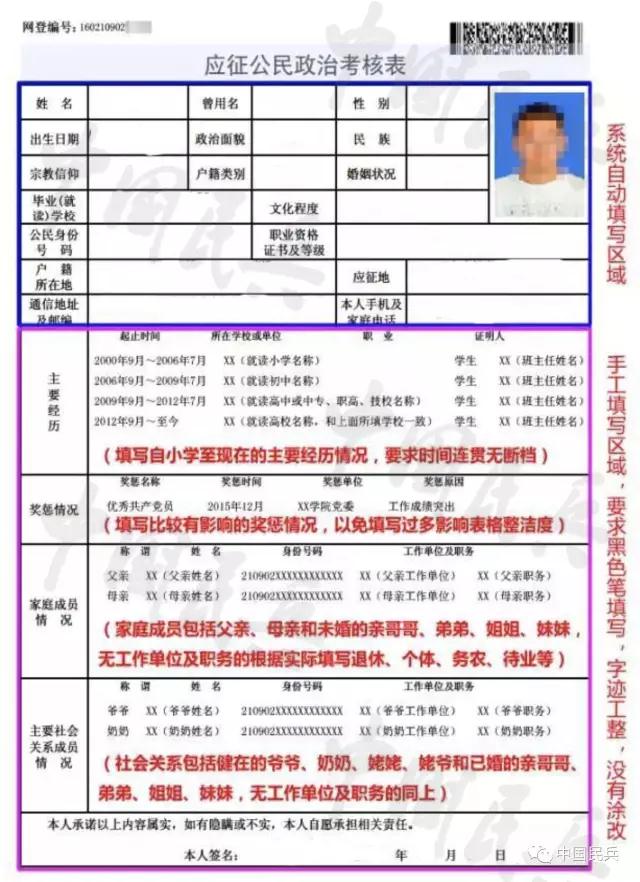 网登编号：160210902
应征公民政治考核表
姓 名 曾用名 性 别
出生日期 政治面貌 民 族
宗教信仰 户籍类别 婚姻状况
毕业(就读)学校 文化程度
公民身份号 码 职业资格证书及等级
户 籍所在地 应征地
通信地址及邮编 本人手机及家庭电话
系统自动填写区域
主要经历
起止时间 所在学校或单位 职 业 证明人
2000年9月～2006年7月 XX（就读小学名称） 学生 XX（班主任姓名）
2006年9月～2009年7月 XX（就读初中名称） 学生 XX（班主任姓名）
2009年9月～2012年7月 XX（就读高中或中专、职高、技校名称） 学生 XX（班主任姓名）
2012年9月～至今 XX（就读高校名称，和上面所填学校一致） 学生 XX（班主任姓名）
（填写自小学至现在的主要经历情况，要求时间连贯无断档）
奖惩情况
奖惩名称 奖惩时间 奖惩单位 奖惩原因
优秀共产党员 2015年12月 XX学院党委 工作成绩突出
（填写比较有影响的奖惩情况，以免填写过多影响表格整洁度）
家庭成员情 况
称 谓 姓 名 身份证号码 工作单位及职务
父亲 XX（父亲姓名） 210902XXXXXXXXXXXX XX（父亲工作单位）XX（父亲职务）
母亲 XX（母亲姓名） 210902XXXXXXXXXXXX XX（母亲工作单位）XX（母亲职务）
（家庭成员包括父亲、母亲和未婚的亲哥哥、弟弟、姐姐、妹妹，
无工作单位及职务的根据实际填写退休、个体、务农、待业等）
主要社会关系成员情 况
称 谓 姓 名 身份证号码 工作单位及职务
爷爷 XX（爷爷姓名） 210902XXXXXXXXXXXX XX（爷爷工作单位）XX（爷爷职务）
奶奶 XX（奶奶姓名） 210902XXXXXXXXXXXX XX（奶奶工作单位）XX（奶奶职务）
（社会关系包括健在的爷爷、奶奶、姥姥、姥爷和已婚的亲哥哥、
弟弟、姐姐、妹妹，无工作单位及职务的同上）
手工填写区域，要求黑色笔填写，字迹工整，没有涂改
本人承诺以上内容属实，如有隐瞒或不实，本人自愿承担相关责任。
本人签名： 年 月 日
中国民兵